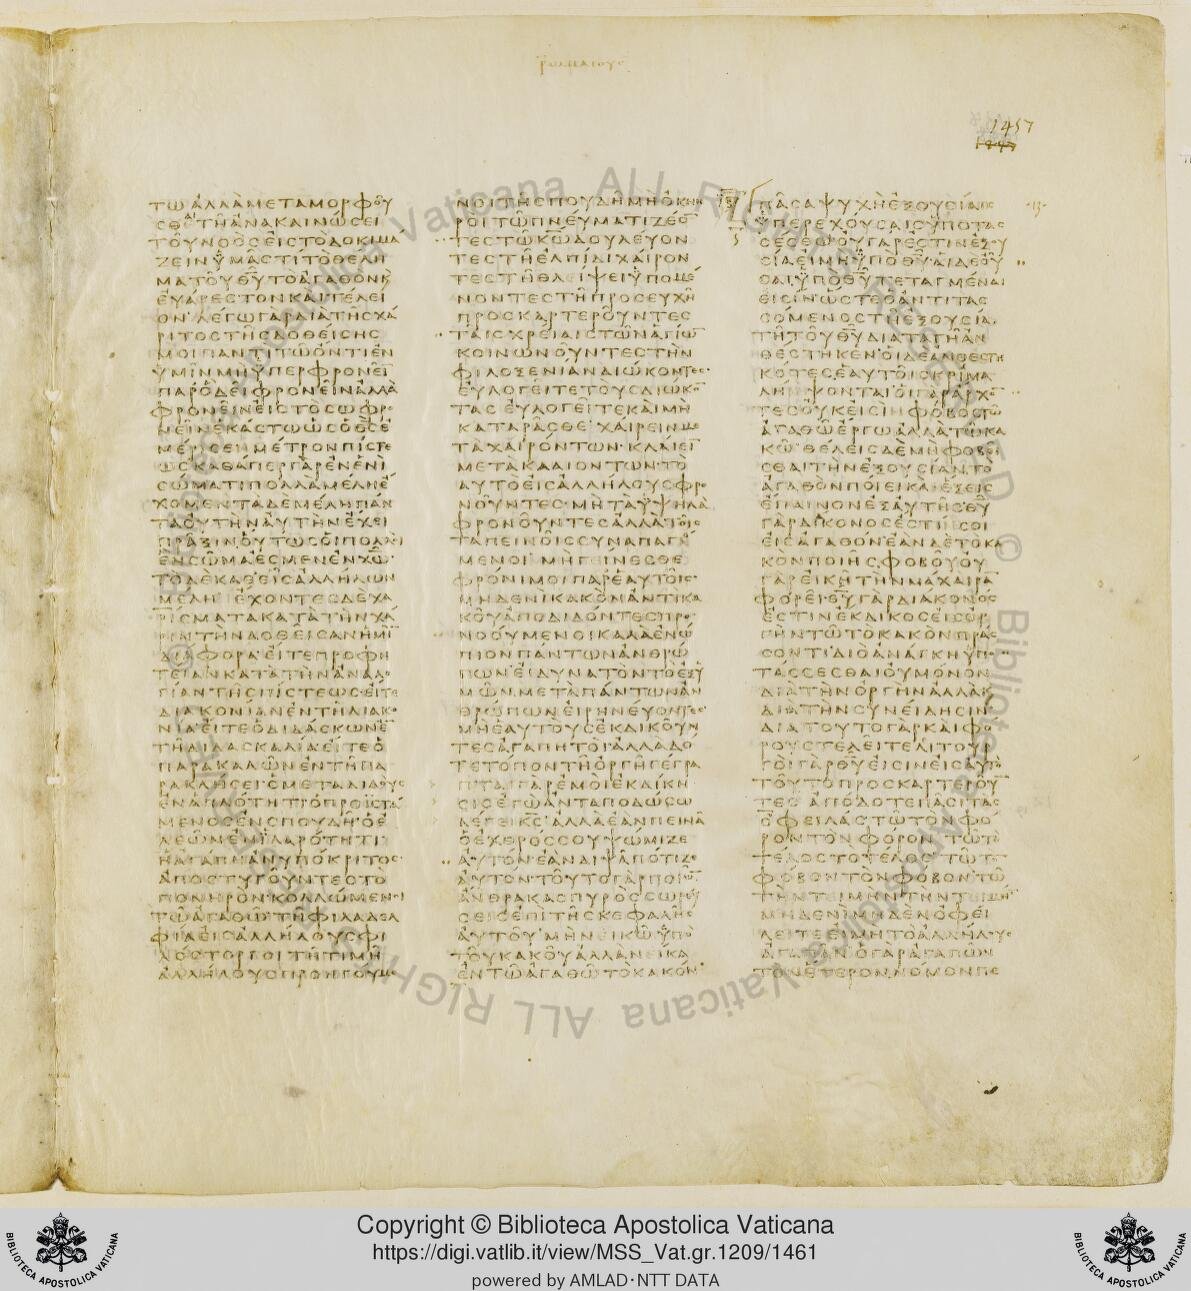 1457
ΤΩΑΛΛΑΜΕΤΑΜΟΡΦΟΥ
ΣΘΕΤΗΑΝΑΚΑΙΝΩΣΕΙ
ΤΟΥΝΟΟΣΕΙΣΤΟΔΟΚΙΜΑ
ΖΕΙΝΥΜΑΣΤΙΤΟΘΕΛΗ
ΜΑΤΟΥΘΥΤΟΑΓΑΘΟΝΚ
ΕΥΑΡΕΣΤΟΝΚΑΙΤΕΛΕΙ
ΟΝ ΛΕΓΩΓΑΡΔΙΑΤΗΣΧΑ
ΡΙΤΟΣΤΗΣΔΟΘΕΙΣΗΣ
ΜΟΙΠΑΝΤΙΤΩΟΝΤΙΕΝ
ΥΜΙΝΜΗΥΠΕΡΦΡΟΝΕΙ
ΠΑΡΟΔΕΙΦΡΟΝΕΙΝΑΛΛΑ
ΦΡΟΝΕΙΝΕΙΣΤΟΣΩΦΡΟ
ΝΕΙΝΕΚΑΣΤΩΩΣΟΘΣΕ
ΜΕΡΙΣΕΝΜΕΤΡΟΝΠΙΣΤΕ
ΩΣΚΑΘΑΠΕΡΓΑΡΕΝΕΝΙ
ΣΩΜΑΤΙΠΟΛΛΑΜΕΛΗΕ
ΧΟΜΕΝΤΑΔΕΜΕΛΗΠΑΝ
ΤΑΟΥΤΗΝΑΥΤΗΝΕΧΕΙ
ΠΡΑΞΙΝΟΥΤΩΣΟΙΠΟΛΛΟΙ
ΕΝΣΩΜΑΕΣΜΕΝΕΝΧΩ
ΤΟΔΕΚΑΘΕΙΣΑΛΛΗΛΩΝ
ΜΕΛΗ ΕΧΟΝΤΕΣΔΕΧΑ
ΡΙΣΜΑΤΑΚΑΤΑΤΗΝΧΑ
ΡΙΝΤΗΝΔΟΘΕΙΣΑΝΗΜΙ
ΔΙΑΦΟΡΑ ΕΙΤΕΠΡΟΦΗ
ΤΕΙΑΝΚΑΤΑΤΗΝΑΝΑΛΟ
ΓΙΑΝΤΗΣΠΙΣΤΕΩΣ ΕΙΤΕ
ΔΙΑΚΟΝΙΑΝΕΝΤΗΔΙΑΚΟ
ΝΙΑΕΙΤΕΟΔΙΔΑΣΚΩΝΕ
ΤΗΔΙΔΑΣΚΑΛΙΑΕΙΤΕΟ
ΠΑΡΑΚΑΛΩΝΕΝΤΗΠΑ
ΡΑΚΛΗΣΕΙΟΜΕΤΑΔΙΔΟΥΣ
ΕΝΑΠΛΟΤΗΤΙΟΠΡΟΙΣΤΑ
ΜΕΝΟΣΕΝΣΠΟΥΔΗΟΕ
ΛΕΩΝΕΝΙΛΑΡΟΤΗΤΙ
ΗΑΓΑΠΗΑΝΥΠΟΚΡΙΤΟΣ
ΑΠΟΣΤΥΓΟΥΝΤΕΣΤΟ
ΠΟΝΗΡΟΝΚΟΛΛΩΜΕΝΟΙ
ΤΩΑΓΑΘΩΤΗΦΙΛΑΔΕΛ
ΦΙΑΕΙΣΑΛΛΗΛΟΥΣΦΙ
ΛΟΣΤΟΡΓΟΙΤΗΤΙΜΗ
ΑΛΛΗΛΟΥΣΠΡΟΗΓΟΥΜΕ
ΝΟΙΤΗΣΠΟΥΔΗΜΗΟΚΝΗ
ΡΟΙΤΩΠΝΕΥΜΑΤΙΖΕΟ
ΤΕΣΤΩΚΩΔΟΥΛΕΥΟΝ
ΤΕΣΤΗΕΛΠΙΔΙΧΑΙΡΟΝ
ΤΕΣΤΗΘΛΕΙΨΕΙΥΠΟΜΕ
ΝΟΝΤΕΣΤΗΠΡΟΣΕΥΧΗ
ΠΡΟΣΚΑΡΤΕΡΟΥΝΤΕΣ
ΤΑΙΣΧΡΕΙΑΙΣΤΩΝΑΓΙΩ
ΚΟΙΝΩΝΟΥΝΤΕΣΤΗΝ
ΦΙΛΟΞΕΝΙΑΝΔΙΩΚΟΝΤΕΣ
ΕΥΛΟΓΕΙΤΕΤΟΥΣΔΙΩΚΟ
ΤΑΣ ΕΥΛΟΓΕΙΤΕΚΑΙΜΗ
ΚΑΤΑΡΑΣΘΕ ΧΑΙΡΕΙΝΜΕ
ΤΑΧΑΙΡΟΝΤΩΝ ΚΛΑΙΕΙ
ΜΕΤΑΚΛΑΙΟΝΤΩΝ ΤΟ
ΑΥΤΟΕΙΣΑΛΛΗΛΟΥΣΦΡΟ
ΝΟΥΝΤΕΣ ΜΗΤΑΥΨΗΛΑ
ΦΡΟΝΟΥΝΤΕΣΑΛΛΑΤΟΙΣ
ΤΑΠΕΙΝΟΙΣΣΥΝΑΠΑΓΟ
ΜΕΝΟΙ ΜΗΓΕΙΝΕΣΘΕ
ΦΡΟΝΙΜΟΙΠΑΡΕΑΥΤΟΙΣ
ΜΗΔΕΝΙΚΑΚΟΝΑΝΤΙΚΑ
ΚΟΥΑΠΟΔΙΔΟΝΤΕΣΠΡΟ
ΝΟΟΥΜΕΝΟΙΚΑΛΑΕΝΩ
ΠΙΟΝΠΑΝΤΩΝΑΝΘΡΩ
ΠΩΝΕΙΔΥΝΑΤΟΝΤΟΕΞΥ
ΜΩΝΜΕΤΑΠΑΝΤΩΝΑΝ
ΘΡΩΠΩΝΕΙΡΗΝΕΥΟΝΤΕΣ
ΜΗΕΑΥΤΟΥΣΕΚΔΙΚΟΥΝ
ΤΕΣΑΓΑΠΗΤΟΙΑΛΛΑΔΟ
ΤΕΤΟΠΟΝΤΗΟΡΓΗΓΕΓΡΑ
ΠΤΑΙΓΑΡΕΜΟΙΕΚΔΙΚΗ
ΣΙΣΕΓΩΑΝΤΑΠΟΔΩΣΩ
ΛΕΓΕΙΚΣ ΑΛΛΑΕΑΝΠΕΙΝΑ
ΟΕΧΘΡΟΣΣΟΥΨΩΜΙΖΕ
ΑΥΤΟΝΕΑΝΔΙΨΑΠΟΤΙΖΕ
ΑΥΤΟΝ ΤΟΥΤΟΓΑΡΠΟΙΩ
ΑΝΘΡΑΚΑΣΠΥΡΟΣΣΩΡΕΥ
ΣΕΙΣΕΠΙΤΗΣΚΕΦΑΛΗΣ
ΑΥΤΟΥ ΜΗΝΕΙΚΩΥΠΟ
ΤΟΥΚΑΚΟΥΑΛΛΑΝΕΙΚΑ
ΕΝΤΩΑΓΑΘΩΤΟΚΑΚΟΝ
ΠΑΣΑΨΥΧΗΕΞΟΥΣΙΑΙΣ
ΥΠΕΡΕΧΟΥΣΑΙΣΥΠΟΤΑΣ
ΣΕΣΘΩΟΥΓΑΡΕΣΤΙΝΕΞΟΥ
ΣΙΑΕΙΜΗΥΠΟΘΥΑΙΔΕΟΥ
ΣΑΙΥΠΟΘΥΤΕΤΑΓΜΕΝΑΙ
ΕΙΣΙΝΩΣΤΕΟΑΝΤΙΤΑΣ
ΣΟΜΕΝΟΣΤΗΕΞΟΥΣΙΑ
ΤΗΤΟΥΘΥΔΙΑΤΑΓΗΑΝ
ΘΕΣΤΗΚΕΝ ΟΙΔΕΑΝΘΕΣΤΗ
ΚΟΤΕΣΕΑΥΤΟΙΣΚΡΙΜΑ
ΛΗΜΨΟΝΤΑΙΟΙΓΑΡΑΡΧΟ
ΤΕΣΟΥΚΕΙΣΙΝΦΟΒΟΣΤΩ
ΑΓΑΘΩΕΡΓΩΑΛΛΑΤΩΚΑ
ΚΩ ΘΕΛΕΙΣΔΕΜΗΦΟΒΕΙ
ΣΘΑΙΤΗΝΕΞΟΥΣΙΑΝΤΟ
ΑΓΑΘΟΝΠΟΙΕΙΚΑΙΕΞΕΙΣ
ΕΠΑΙΝΟΝΕΞΑΥΤΗΣΘΥ
ΓΑΡΔΙΑΚΟΝΟΣΕΣΤΙΝΣΟΙ
ΕΙΣΑΓΑΘΟΝΕΑΝΔΕΤΟΚΑ
ΚΟΝΠΟΙΗΣΦΟΒΟΥΟΥ
ΓΑΡΕΙΚΗΤΗΝΜΑΧΑΙΡΑ
ΦΟΡΕΙΘΥΓΑΡΔΙΑΚΟΝΟΣ
ΕΣΤΙΝΕΚΔΙΚΟΣΕΙΣΟΡ
ΓΗΝΤΩΤΟΚΑΚΟΝΠΡΑΣ
ΣΟΝΤΙΔΙΟΑΝΑΓΚΗΥΠΟ
ΤΑΣΣΕΣΘΑΙΟΥΜΟΝΟΝ
ΔΙΑΤΗΝΟΡΓΗΝΑΛΛΑΚ
ΔΙΑΤΗΝΣΥΝΕΙΔΗΣΙΝ
ΔΙΑΤΟΥΤΟΓΑΡΚΑΙΦΟ
ΡΟΥΣΤΕΛΕΙΤΕΛΙΤΟΥΡ
ΓΟΙΓΑΡΘΥΕΙΣΙΝΕΙΣΑΥΤΟ
ΤΟΥΤΟΠΡΟΣΚΑΡΤΕΡΟΥ
ΤΕΣ ΑΠΟΔΟΤΕΠΑΣΙΤΑΣ
ΟΦΕΙΛΑΣΤΩΤΟΝΦΟ
ΡΟΝΤΟΝΦΟΡΟΝ ΤΩΤΟ
ΤΕΛΟΣΤΟΤΕΛΟΣ ΤΩΤΟ
ΦΟΒΟΝΤΟΝΦΟΒΟΝΤΩ
ΤΗΝΤΕΙΜΗΝΤΗΝΤΕΙΜΗ
ΜΗΔΕΝΙΜΗΔΕΝΟΦΕΙ
ΛΕΙΤΕΕΙΜΗΤΟΑΛΛΗΛΟΥΣ
ΑΓΑΠΑΝΟΓΑΡΑΓΑΠΩΝ
ΤΟΝΕΤΕΡΟΝΝΟΜΟΝΠΕ
Copyright © Biblioteca Apostolica Vaticana
https://digi.vatlib.it/view/MSS_Vat.gr.1209/1461
powered by AMLAD·NTT DATA
BIBLIOTECA APOSTOLICA VATICANA
BIBLIOTECA APOSTOLICA VATICANA